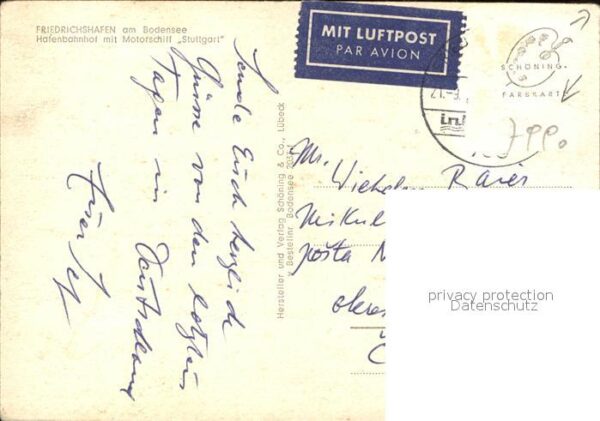 FRIEDRICHSHAFEN am Bodensee
Hafenbahnhof mit Motorschiff „Stuttgart"
MIT LUFTPOST
PAR AVION
SCHÖNING
FARBKARTE
Hersteller und Verlag Schöning & Co., Lübeck
Bestellnr. Bodensee
Sende Euch herzlich
Grüsse von den letzten
Tagen in
Deutschland
Euer
Mr.
posta
okres
privacy protection
Datenschutz